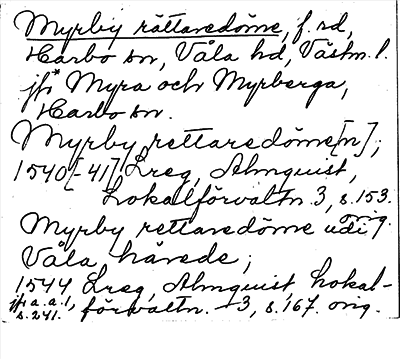 Myrby rättaredöme, f. rd,
Harbo sn, Våla hd, Västm. l.
jfr Myra och Myrberga,
Harbo sn.
Myrby rettaredöme[n];
1540[-41] Lreg, Almquist,
Lokalförvaltn. 3, s. 153.
orig.
Myrby rettaredöme udi
Våla härede;
1544 Lreg, Almquist, Lokal-
förvaltn. 3, s. 167. orig.
jfr a. a. 1,
s. 241.